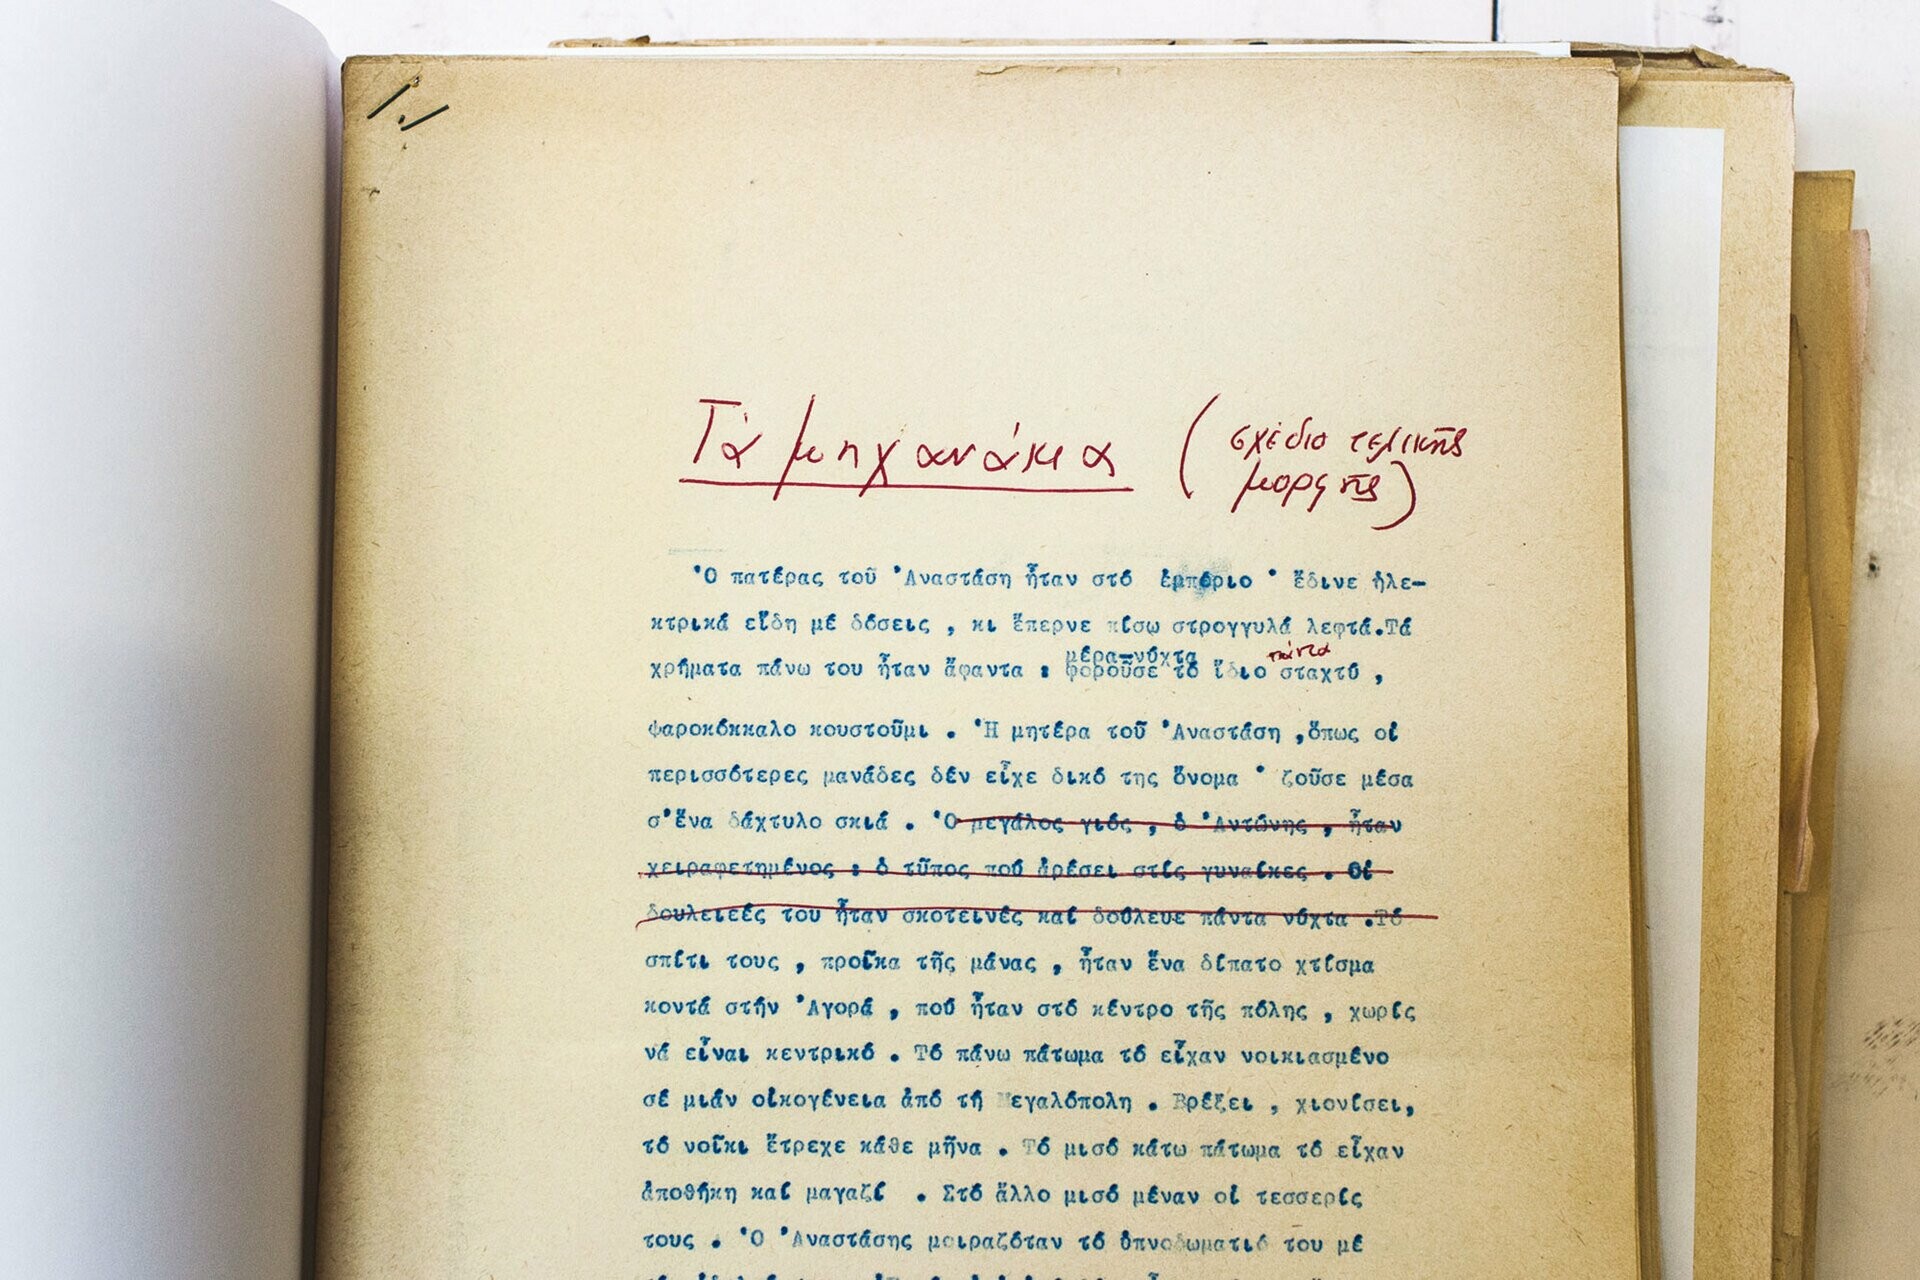 Τά μηχανάκια (σχέδιο τελικῆς
μορφῆς)
Ὁ πατέρας τοῦ Ἀναστάση ἦταν στό ἐμπόριο · ἔδινε ἠλε-
κτρικά εἴδη μέ δόσεις , κι ἔπερνε πίσω στρογγυλά λεφτά.Τά
μέρα-νύχτα πάντα
χρήματα πάνω του ἦταν ἄφαντα : φοροῦσε τό ἴδιο σταχτύ ,
ψαροκόκκαλο κουστοῦμι . Ἡ μητέρα τοῦ Ἀναστάση ,ὅπως οἱ
περισσότερες μανάδες δέν εἶχε δικό της ὄνομα · ζοῦσε μέσα
σ'ἕνα δάχτυλο σκιά . Ὁ μεγάλος γιός , ὁ Ἀντώνης , ἦταν
χειραφετημένος : ὁ τῦπος πού ἀρέσει στίς γυναίκες . Οἱ
δουλειεές του ἦταν σκοτεινές καί δούλευε πάντα νύχτα .Τό
σπίτι τους , προῖκα τῆς μάνας , ἦταν ἕνα δίπατο χτίσμα
κοντά στήν Ἀγορά , πού ἦταν στό κέντρο τῆς πόλης , χωρίς
νά εἶναι κεντρικό . Τό πάνω πάτωμα τό εἶχαν νοικιασμένο
σέ μιάν οἰκογένεια ἀπό τή Μεγαλόπολη . Βρέξει , χιονίσει,
τό νοῖκι ἔτρεχε κάθε μῆνα . Τό μισό κάτω πάτωμα τό εἶχαν
ἀποθήκη καί μαγαζί . Στό ἄλλο μισό μέναν οἱ τεσσερίς
τους . Ὁ Ἀναστάσης μοιραζόταν τό ὑπνοδωματιό του μέ